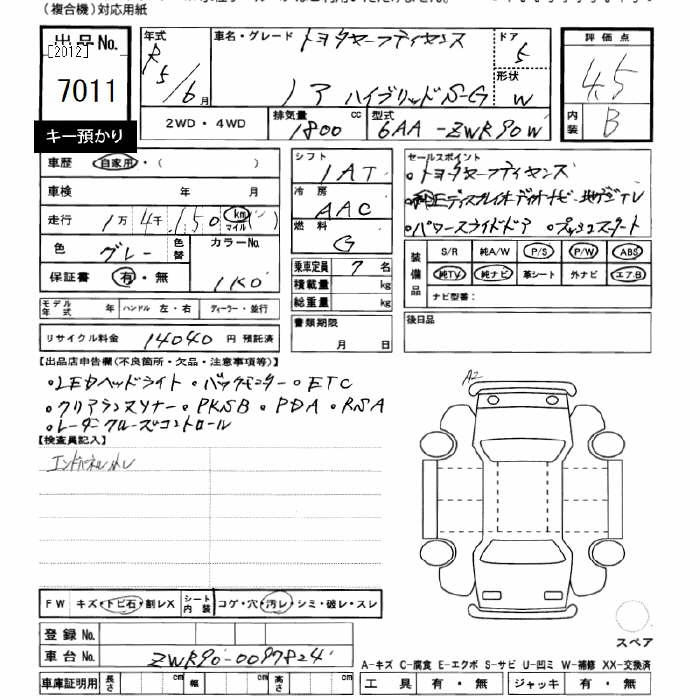 (複合機)対応用紙
出品No.
[2012]
7011
キー預かり
年式
R5/6月
車名・グレード トヨタセーフティセンス
ノア ハイブリッドS-G
ドア
5
形状
W
評価点
4.5
内装
B
2WD・4WD
排気量
1800 cc
型式
6AA-ZWR90W
車歴 自家用・( )
車検 年 月
走行 1万4千150 km マイル ( )
色 グレー 色替 カラーNo.
1K0
保証書 有・無
モデル年式 年 ハンドル 左・右 ディーラー・並行
リサイクル料金 14040 円 預託済
シフト
IAT
冷房
AAC
燃料
G
乗車定員 7 名
積載量 kg
総重量 kg
書類期限
月 日
セールスポイント
・トヨタセーフティセンス
・純正ディスプレイオーディオナビ・地デジTV
・パワースライドドア ・プッシュスタート
装備品
S/R 純A/W P/S P/W ABS
純TV 純ナビ 革シート 外ナビ エアB
ナビ型番:
後日品
【出品店申告欄(不良箇所・欠品・注意事項等)】
・LEDヘッドライト・バックモニター・ETC
・クリアランスソナー・PKSB・PDA・RSA
・レーダークルーズコントロール
【検査員記入】
エンドパネル
A2
FW キズ・トビ石・割レX シート内装 コゲ・穴・汚レ・シミ・破レ・スレ
登録No.
車台No. ZWR90-0097824
車庫証明用 長さ cm 幅 cm 高さ cm
スペア
A-キズ C-腐食 E-エクボ S-サビ U-凹ミ W-補修 XX-交換済
工具 有・無 ジャッキ 有・無